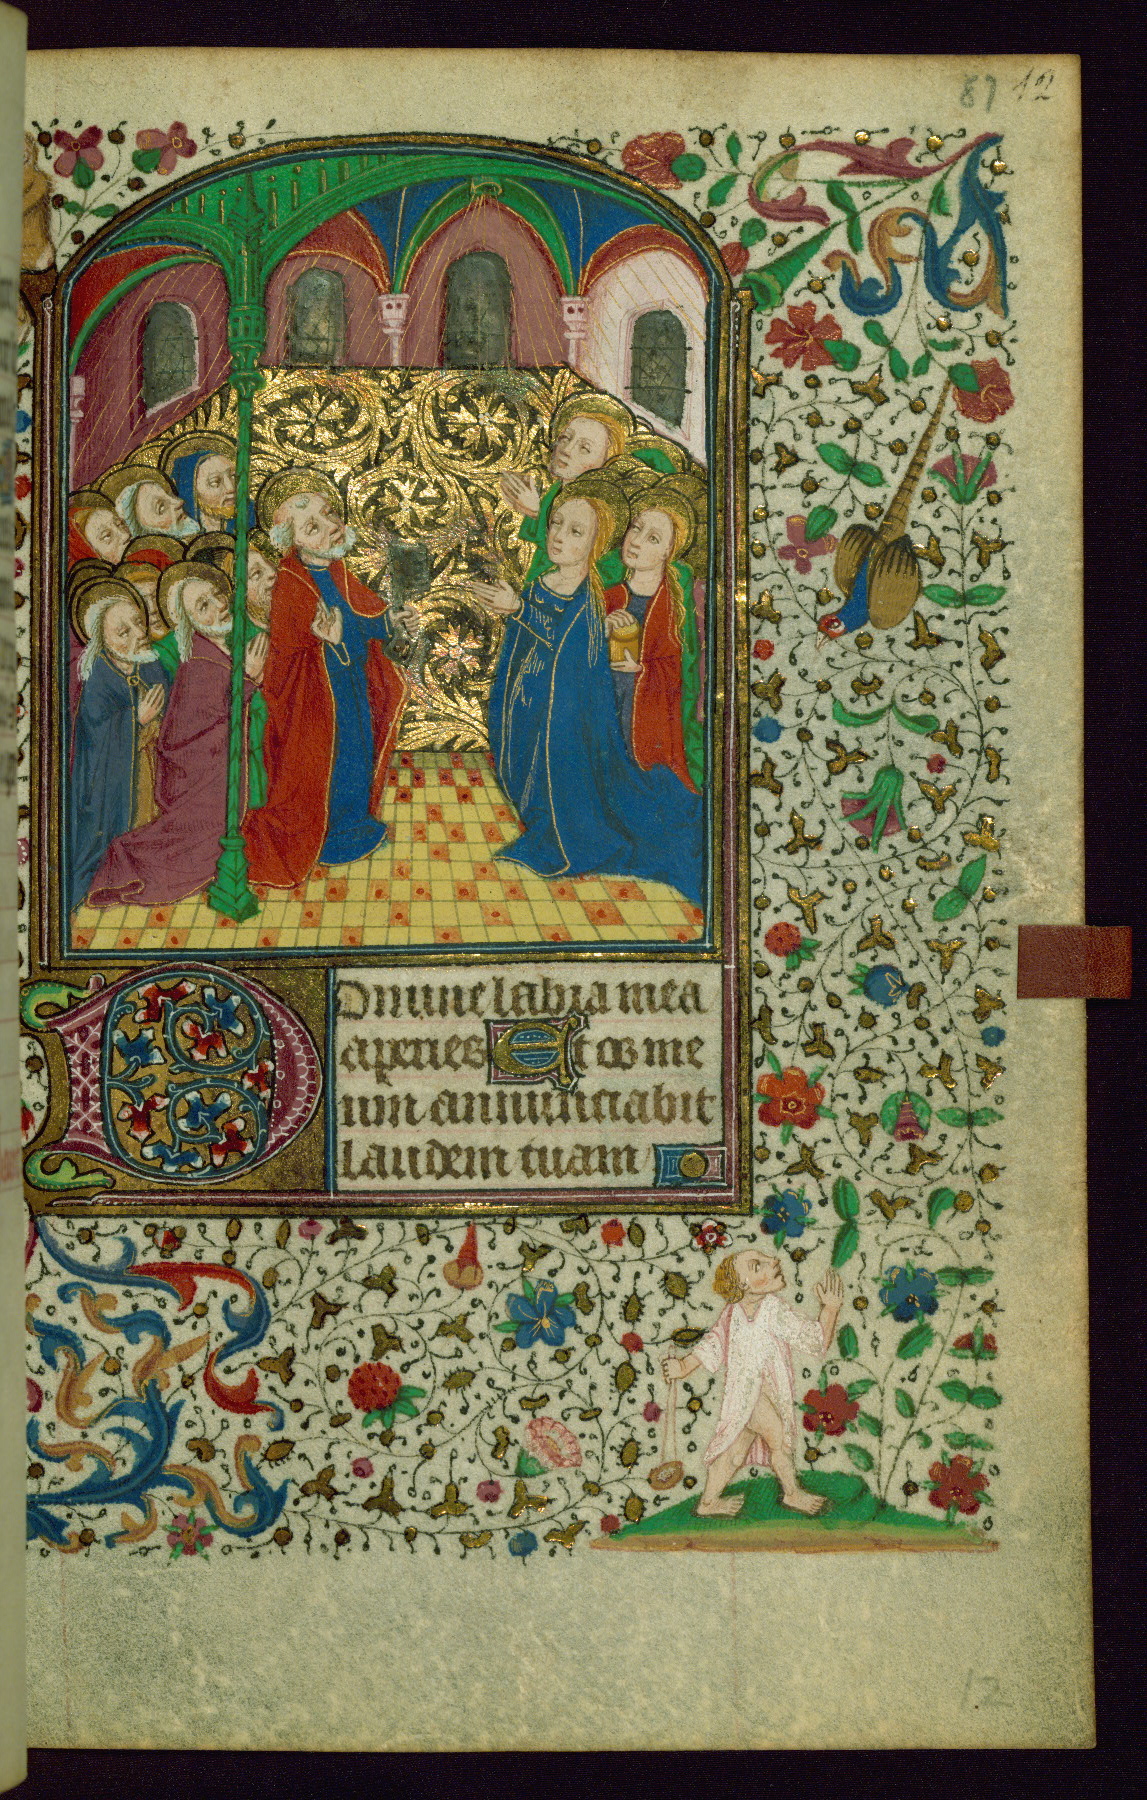 87 12
Domine labia mea
aperies Et os me
um annunciabit
laudem tuam
12